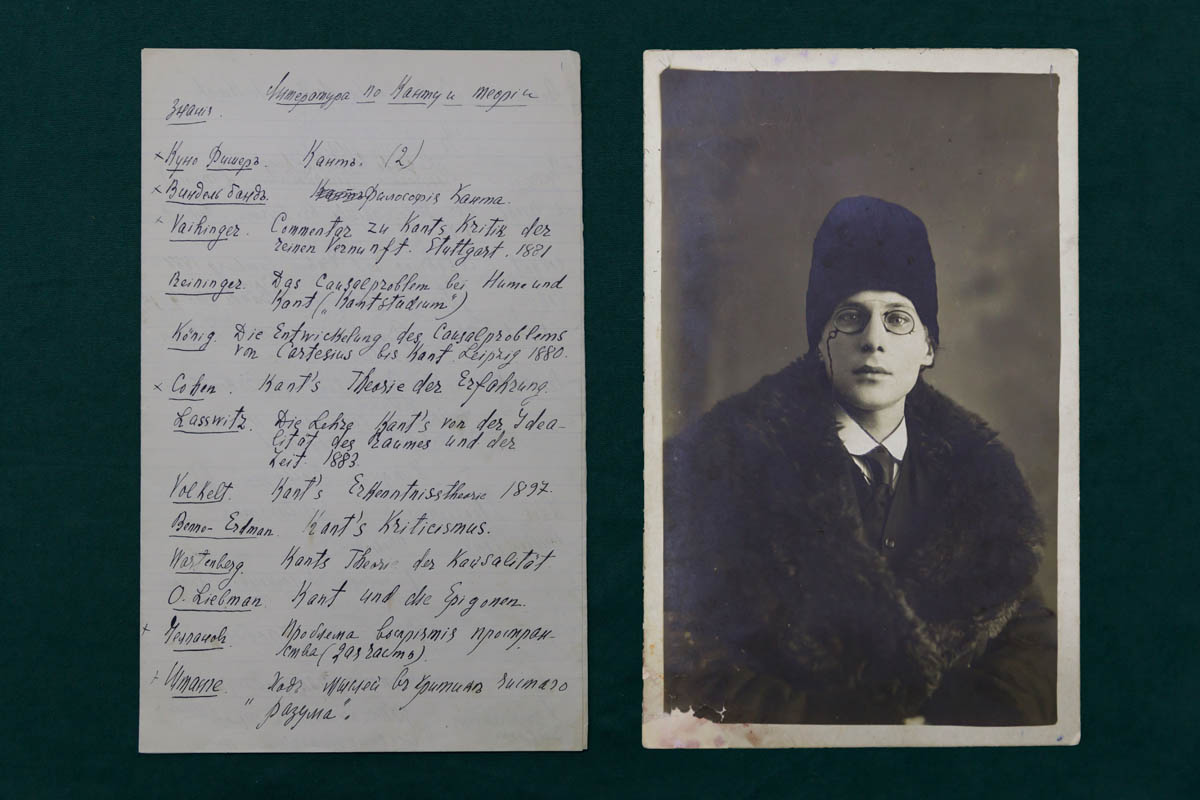 Литература по Канту и теоріи
Знанія.
× Куно Фишеръ. Кантъ. (2)
× Виндельбандъ. Кантъ Философія Канта.
× Vaihinger. Commentar zu Kants Kritik der
reinen Vernunft. Stuttgart. 1881
Reininger. Das Causalproblem bei Hume und
Kant („Kantstudium“)
König. Die Entwickelung des Causalproblems
von Cartesius bis Kant. Leipzig 1880.
× Cohen. Kant's Theorie der Erfahrung.
Lasswitz. Die Lehre Kant's von der Idea-
lität des Raumes und der
Zeit. 1883.
Volkelt. Kant's Erkenntnisstheorie 1897.
Benno-Erdman. Kant's Kriticismus.
Wartenberg. Kants Theorie der Kausalität
O. Liebman. Kant und die Epigonen.
× Челпановъ. Проблема воспріятія простран-
ства (2ая часть).
× Штанге. „Ходъ мыслей въ критикѣ чистаго
разума“.